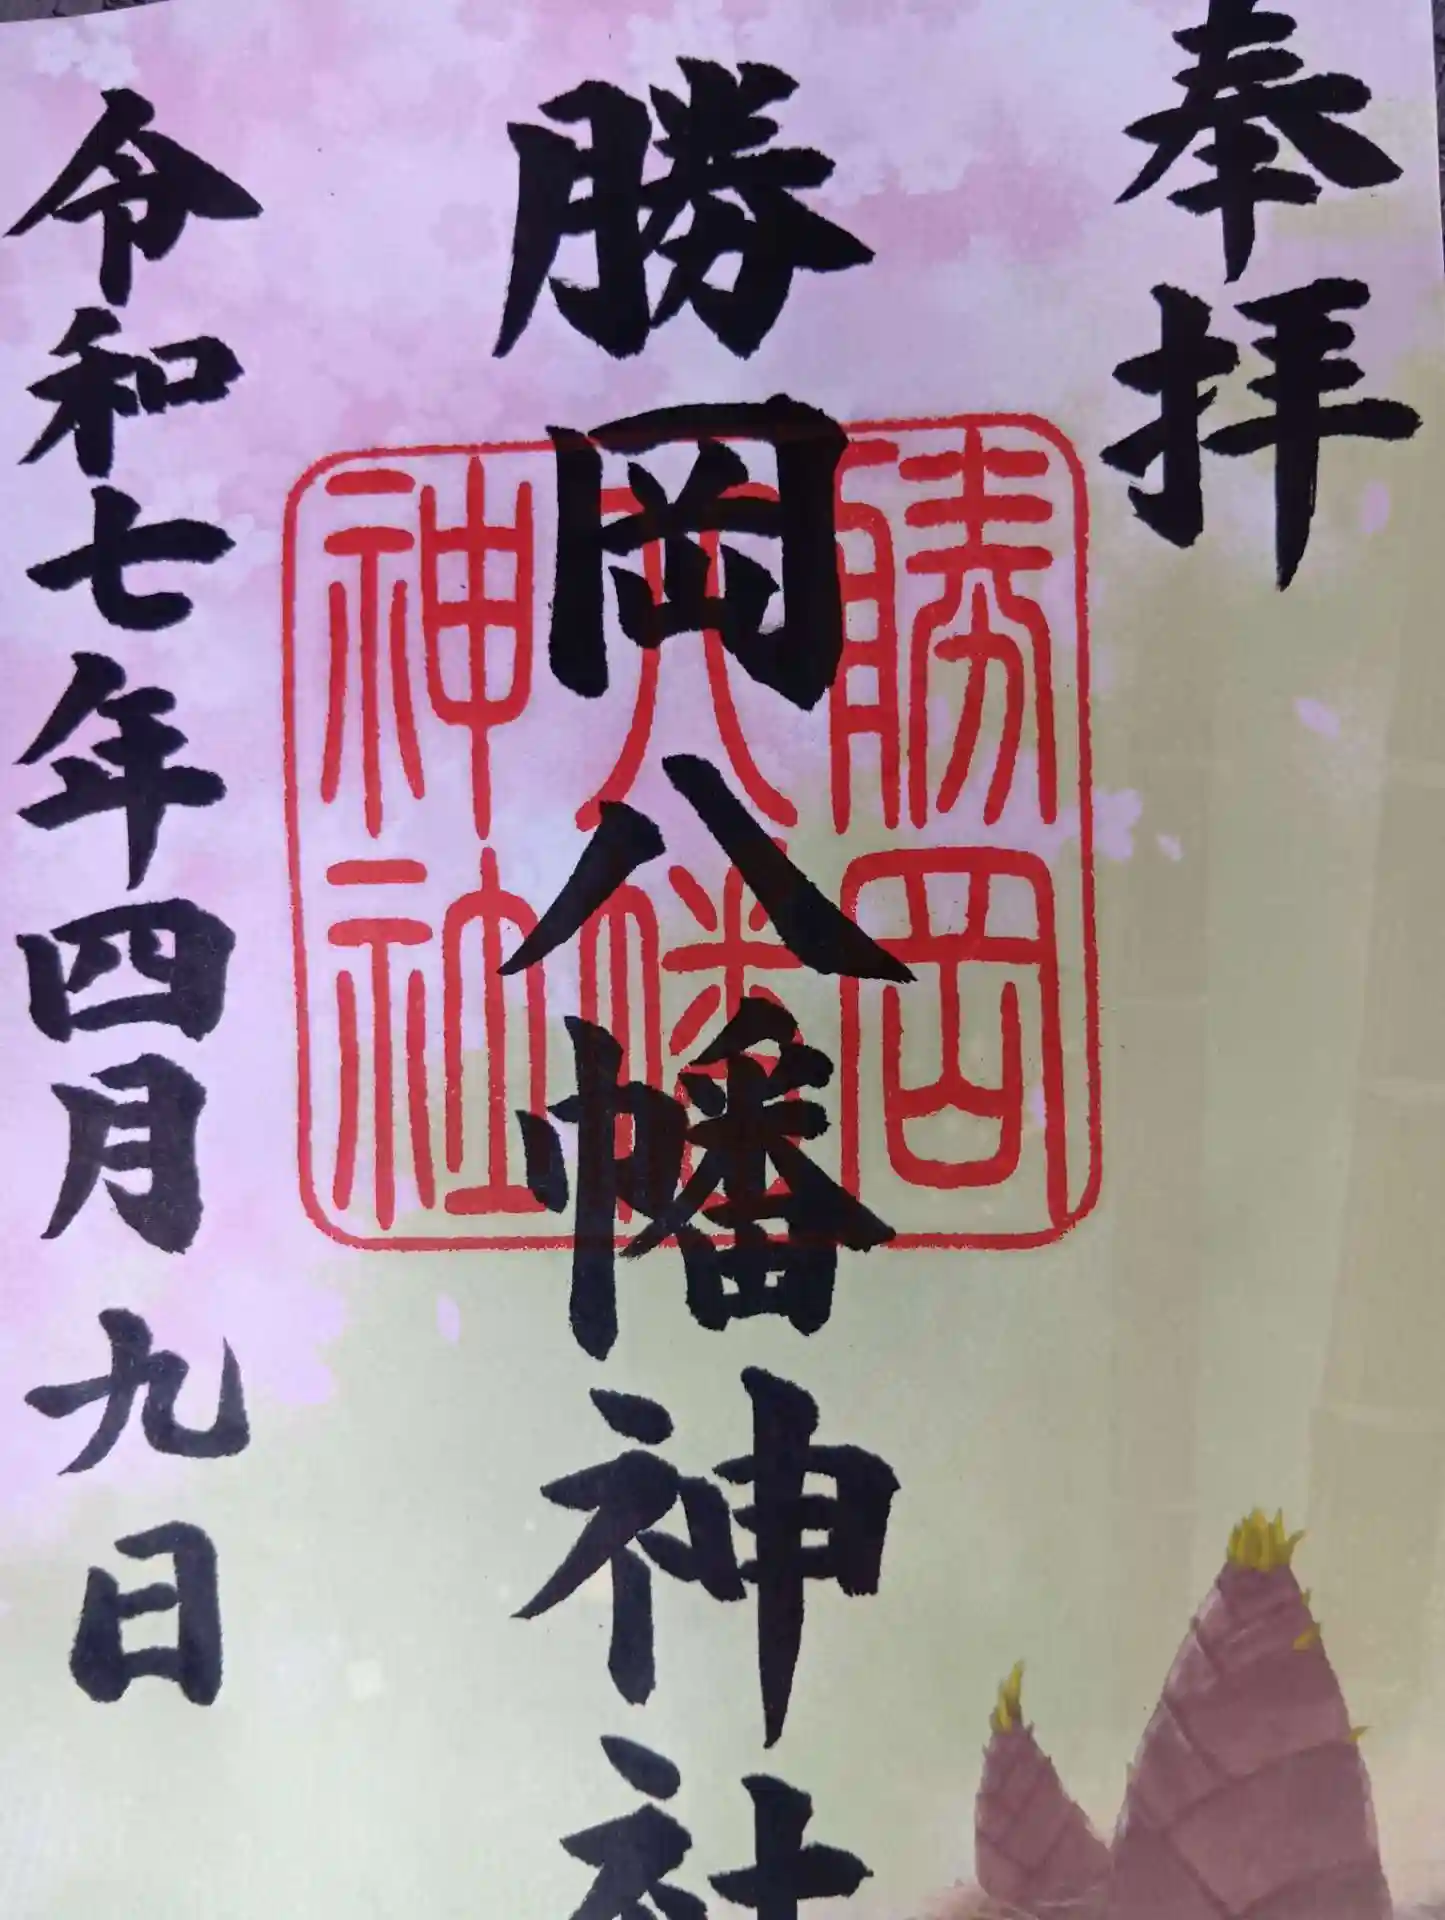 奉拝
勝岡八幡神社
勝岡
八幡
神社
令和七年四月九日